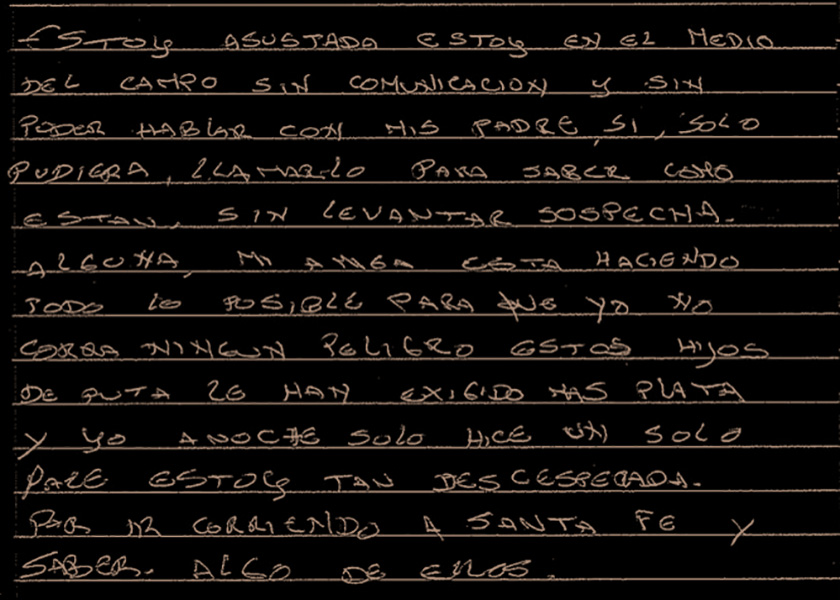 ESTOY ASUSTADA ESTOY EN EL MEDIO
DEL CAMPO SIN COMUNICACION Y SIN
PODER HABLAR CON MIS PADRE, SI, SOLO
PUDIERA, LLAMARLO PARA SABER COMO
ESTAN, SIN LEVANTAR SOSPECHA.
ALGUNA, MI AMIGA ESTA HACIENDO
TODO LO POSIBLE PARA QUE YO NO
CORRA NINGUN PELIGRO ESTOS HIJOS
DE PUTA LE HAN EXIGIDO MAS PLATA
Y YO ANOCHE SOLO HICE UN SOLO
PASE ESTOY TAN DESCESPERADA.
POR IR CORRIENDO A SANTA FE Y
SABER. ALGO DE ELLOS.